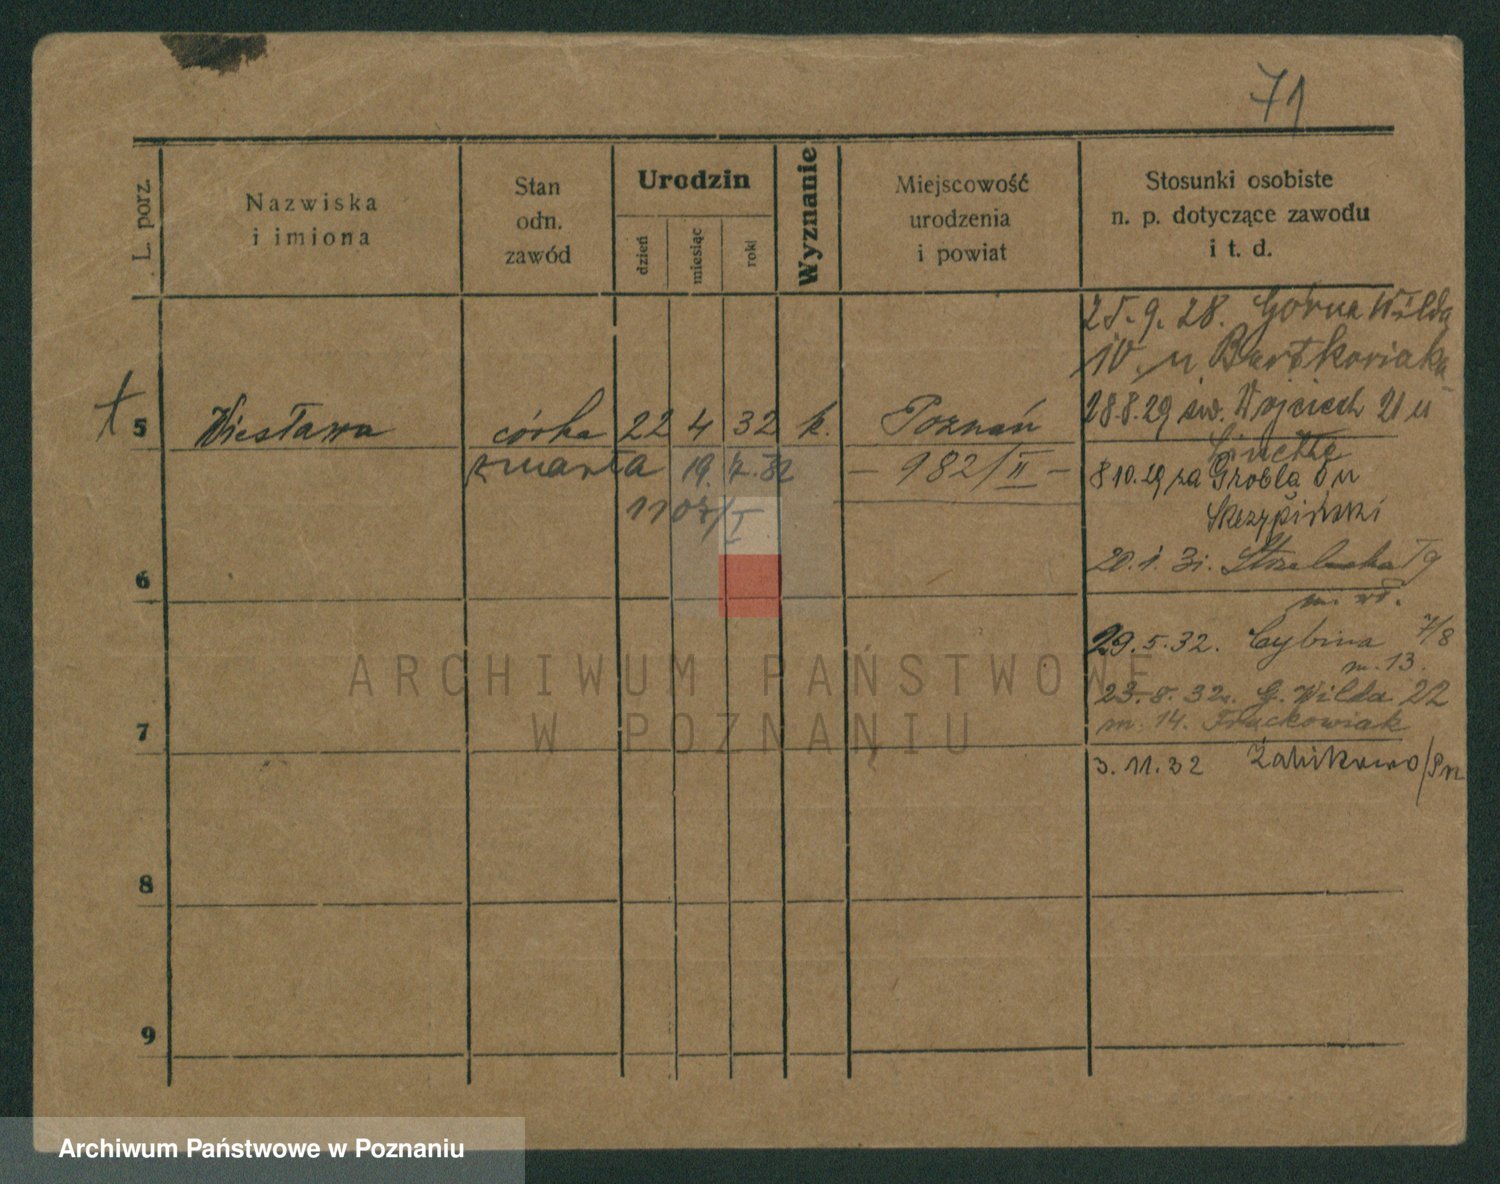 71
L. porz.
Nazwiska
i imiona
Stan
odn.
zawód
Urodzin
dzień
miesiąc
rok
Wyznanie
Miejscowość
urodzenia
i powiat
Stosunki osobiste
n. p. dotyczące zawodu
i t. d.
25.9.28. Górna Wilda
10 u Bartkowiaka
5 Wiesława córka 22 4 32 k. Poznań
28.8.29 św. Wojciech 21 u
zmarła 19.7.32 — 982/II —
8 10.29 za Grobla 6 u
1107/I
Skrzypiński
20.1.31. Strzelecka
6
29.5.32. Cybina 7/8
m. 13.
23.8.32. G. Wilda 22
m. 14. Frackowiak
7
3.11.32 Żabikowo/Pn
8
9
ARCHIWUM PAŃSTWOWE
W POZNANIU
Archiwum Państwowe w Poznaniu